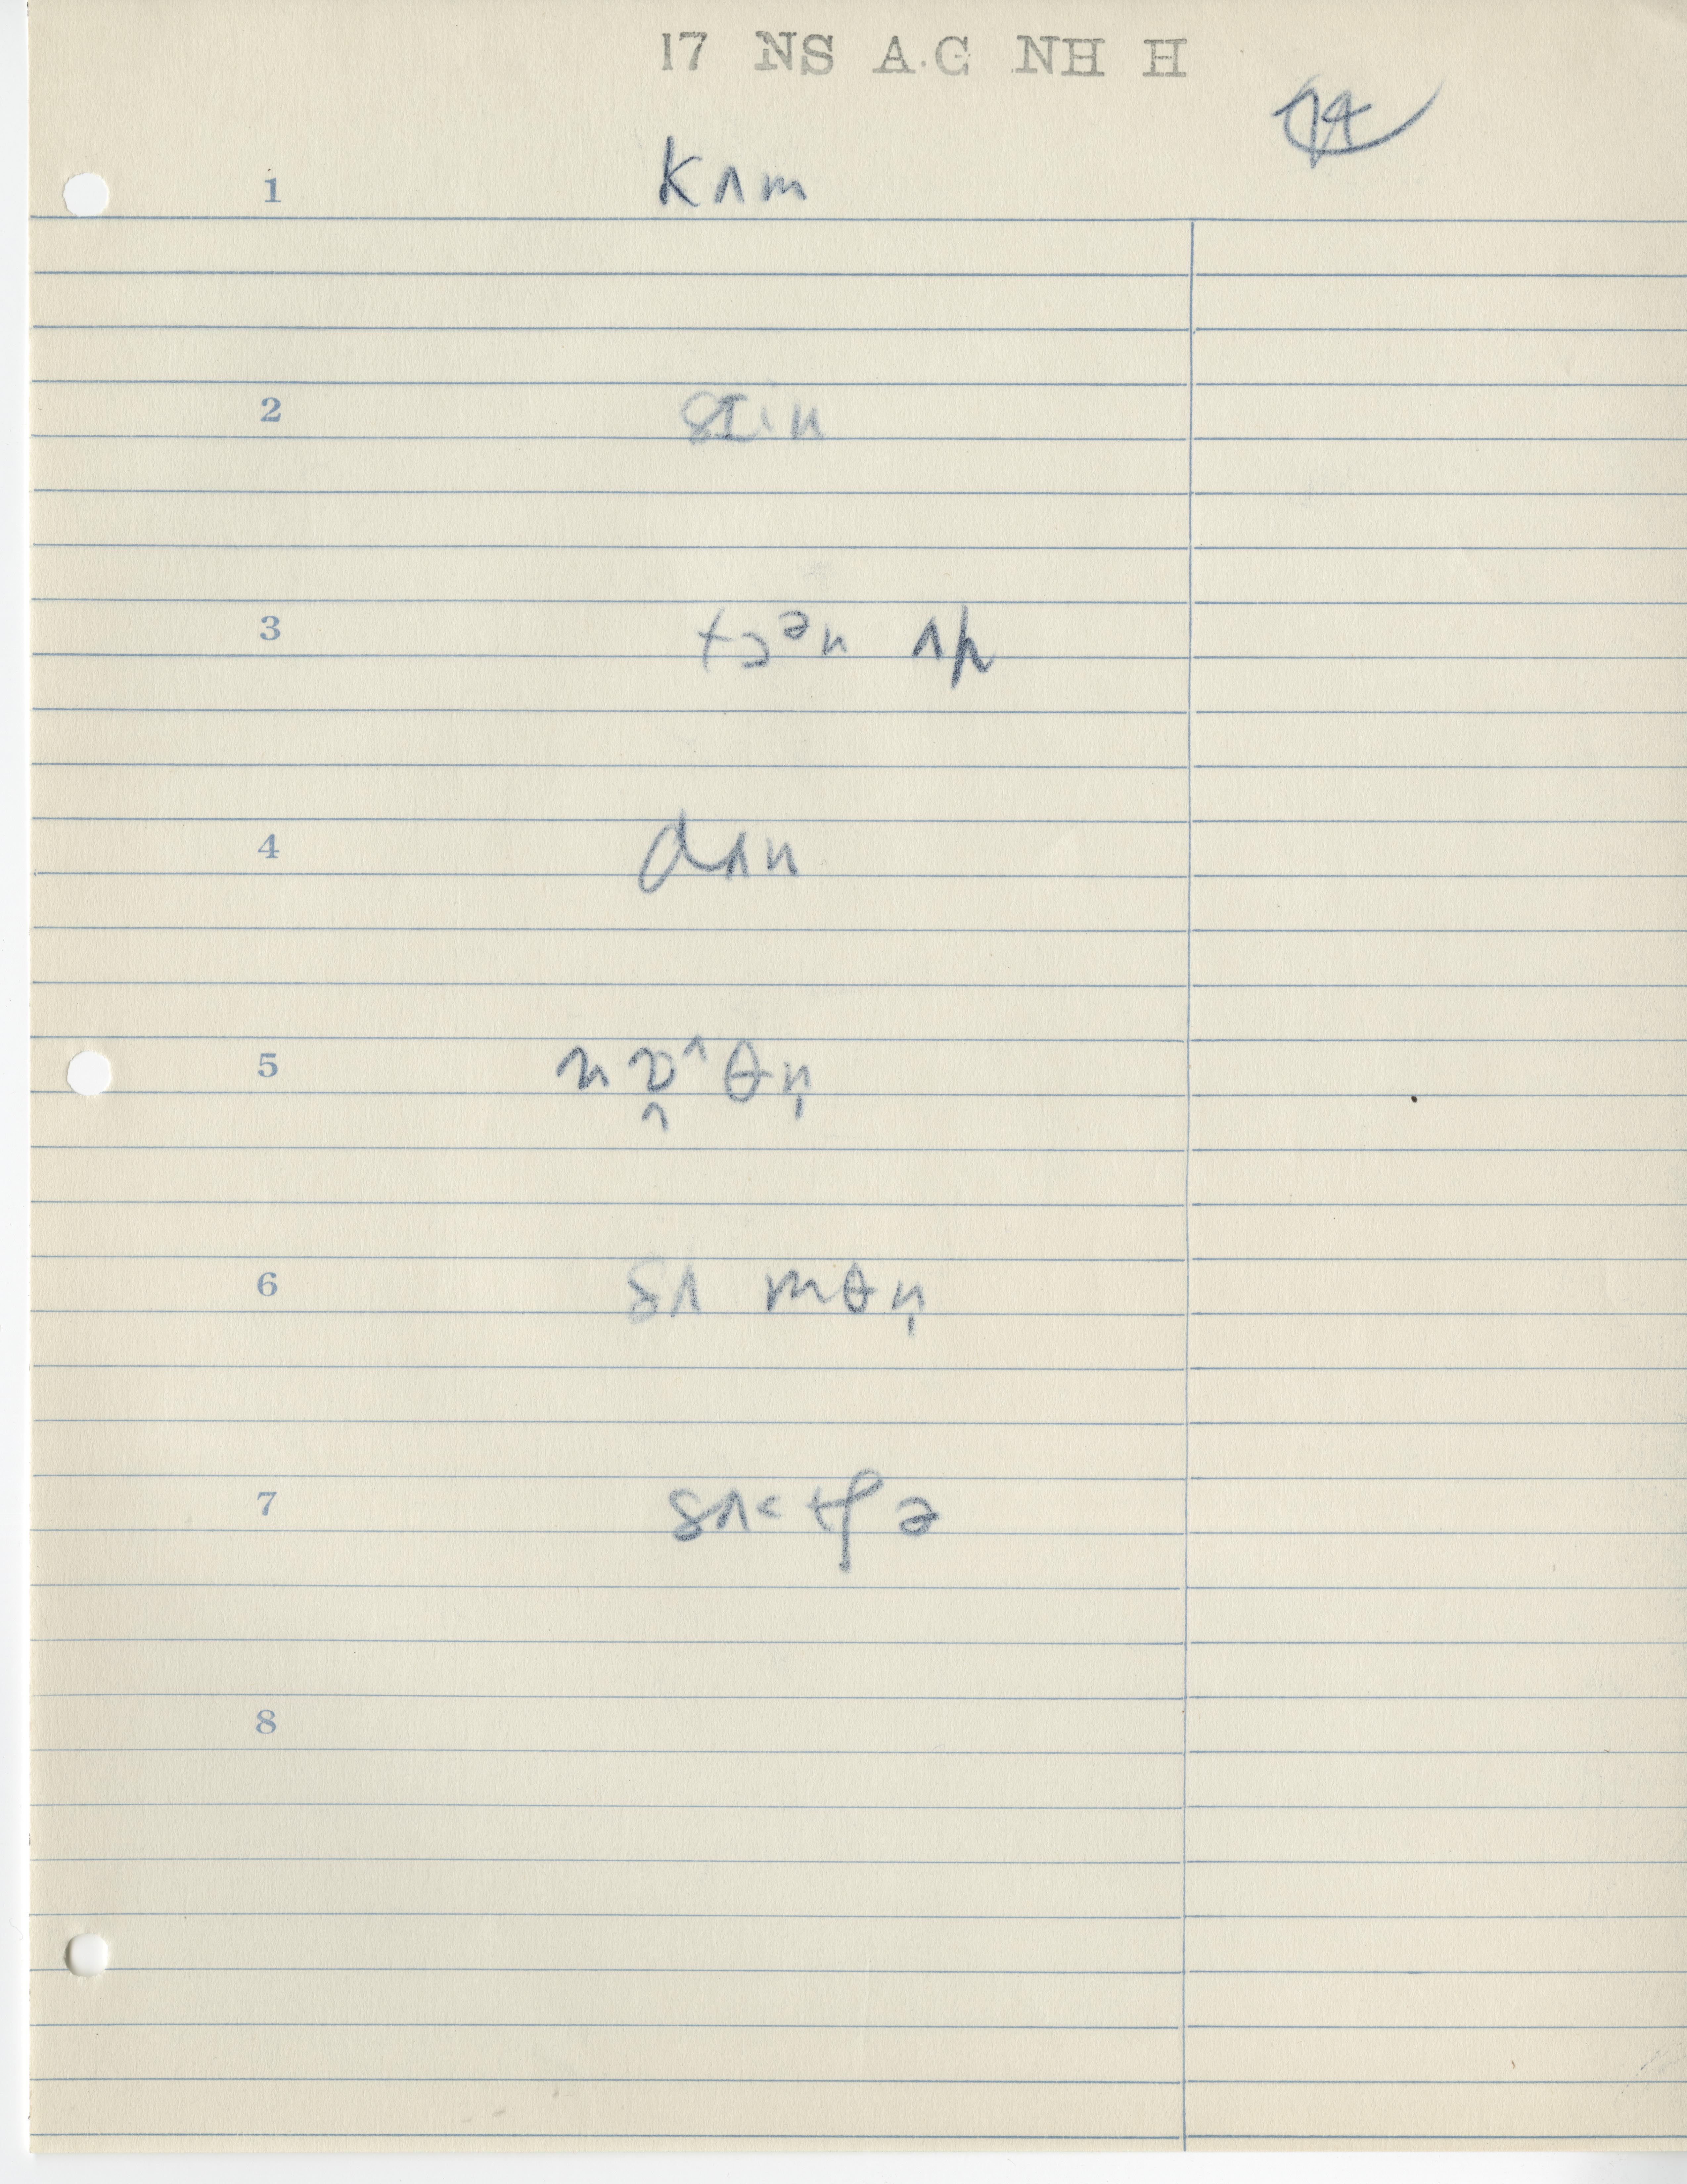 17 NS A.C NH H
14
1 kʌm
2 sɪin
3 tɔᵊn ʌp
4 dʌn
5 nɒ^θn̩
6 sʌ mθn̩
7 sʌ˂tʃə
8